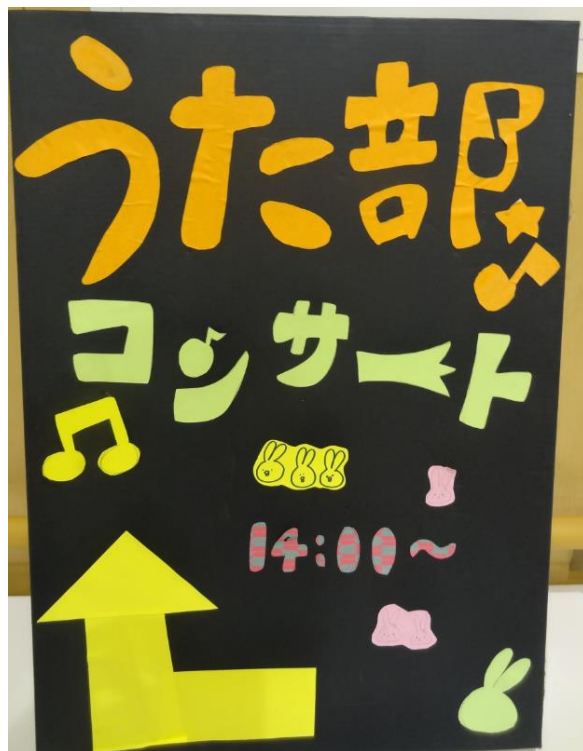 うた部
コンサート
14:00～